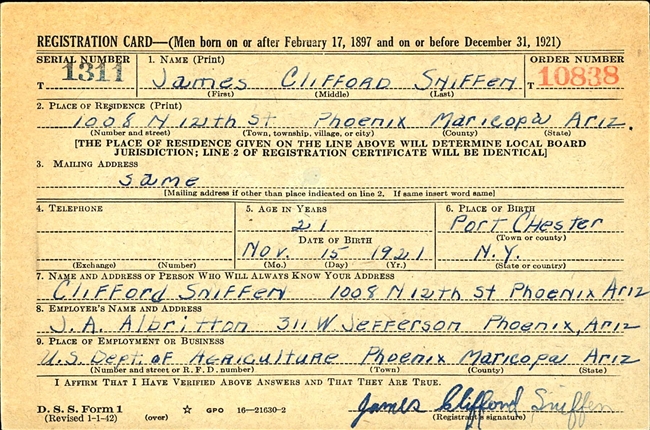 REGISTRATION CARD—(Men born on or after February 17, 1897 and on or before December 31, 1921)
SERIAL NUMBER 1. NAME (Print) ORDER NUMBER
T 1311 James Clifford Sniffen T 10838
(First) (Middle) (Last)
2. PLACE OF RESIDENCE (Print)
1008 N 12th St Phoenix Maricopa Ariz.
(Number and street) (Town, township, village, or city) (County) (State)
[THE PLACE OF RESIDENCE GIVEN ON THE LINE ABOVE WILL DETERMINE LOCAL BOARD
JURISDICTION; LINE 2 OF REGISTRATION CERTIFICATE WILL BE IDENTICAL]
3. MAILING ADDRESS
same
[Mailing address if other than place indicated on line 2. If same insert word same]
4. TELEPHONE 5. AGE IN YEARS 6. PLACE OF BIRTH
21 Port Chester
DATE OF BIRTH (Town or county)
Nov. 15 1921 N.Y.
(Exchange) (Number) (Mo.) (Day) (Yr.) (State or country)
7. NAME AND ADDRESS OF PERSON WHO WILL ALWAYS KNOW YOUR ADDRESS
Clifford Sniffen 1008 N 12th St Phoenix Ariz
8. EMPLOYER'S NAME AND ADDRESS
J. A. Albritton 311 W Jefferson Phoenix, Ariz
9. PLACE OF EMPLOYMENT OR BUSINESS
U.S. Dept. of Agriculture Phoenix Maricopa Ariz
(Number and street or R. F. D. number) (Town) (County) (State)
I AFFIRM THAT I HAVE VERIFIED ABOVE ANSWERS AND THAT THEY ARE TRUE.
James Clifford Sniffen
D. S. S. Form 1 (Registrant's signature)
(Revised 1-1-42) (over) ☆ GPO 16—21630-2